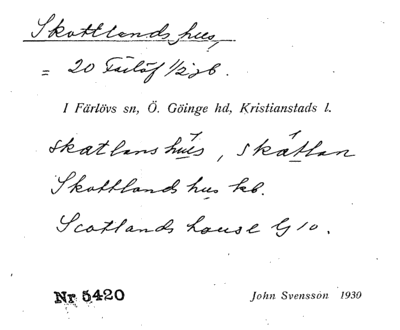 Skottlands hus,
= 20 Färlöf 1/2 gb.
I Färlövs sn, Ö. Göinge hd, Kristianstads l.
skatlans hus, skatlan
Skottlands hus kb.
Scotlands house G 10.
Nr 5420 John Svensson 1930